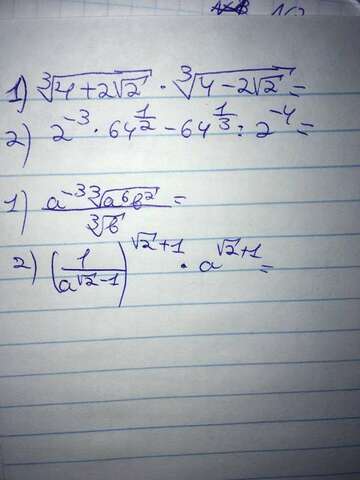 1) ∛(4+2√2) · ∛(4-2√2) =
2) 2^-3 · 64^(1/2) - 64^(1/3) : 2^-4 =
1) (a^-3 ∛(a^6 b^2)) / ∛b =
2) (1 / a^(√2-1))^(√2+1) · a^(√2+1) =